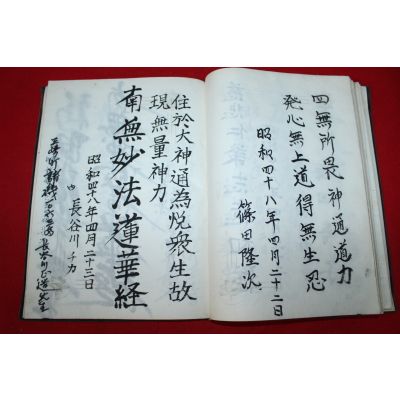 四無所畏神通道力
発心無上道得無生忍
昭和四十八年四月二十二日
篠田隆次
住於大神通為悦衆生故
現無量神力
南無妙法蓮華経
昭和四十八年四月二十三日
長谷川チカ